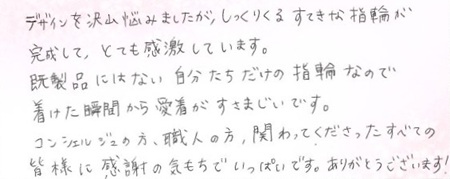 デザインを沢山悩みましたが、しっくりくるすてきな指輪が
完成して、とても感激しています。
既製品にはない自分たちだけの指輪なので
着けた瞬間から愛着がすさまじいです。
コンシェルジュの方、職人の方、関わってくださったすべての
皆様に感謝の気もちでいっぱいです。ありがとうございます!